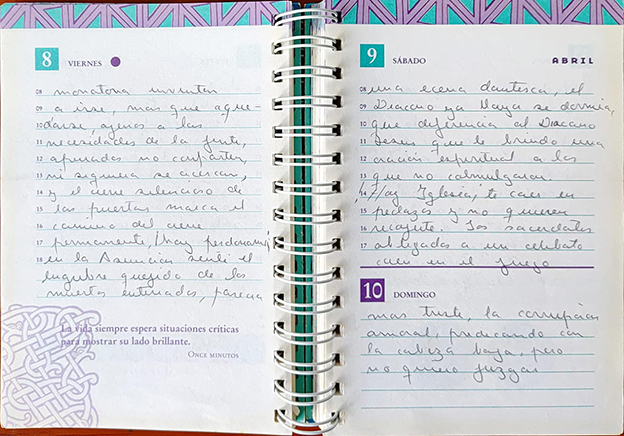 8 VIERNES
08 monotona invitan
09 a irse, mas que a que-
10 darse, ajenos a las
11 necesidades de la gente,
12 apurados no comparten,
13 ni siquiera se acercan,
14 y el cierre silencioso de
15 las puertas marca el
16 camino del cierre
17 permanente,
18 en la Asunción sentí el
lugubre quejido de los
muertos enterrados, parecia
La vida siempre espera situaciones críticas
para mostrar su lado brillante.
ONCE MINUTOS
9 SÁBADO ABRIL
08 una ecena dantesca, el
09 Diacono ya se dormia,
10 que diferencia al Diacono
11 que te brindo una
12 oración espiritual a los
13 que no comulgaran.
14 Iglesia, te caes en
15 pedazos y no quieren
16 recojerte. Los sacerdotes
17 obligados a un celibato
caen en el juego
10 DOMINGO
mas triste, la corrupción
amoral, predicando con
la cabeza baja, pero
no quiero juzgar